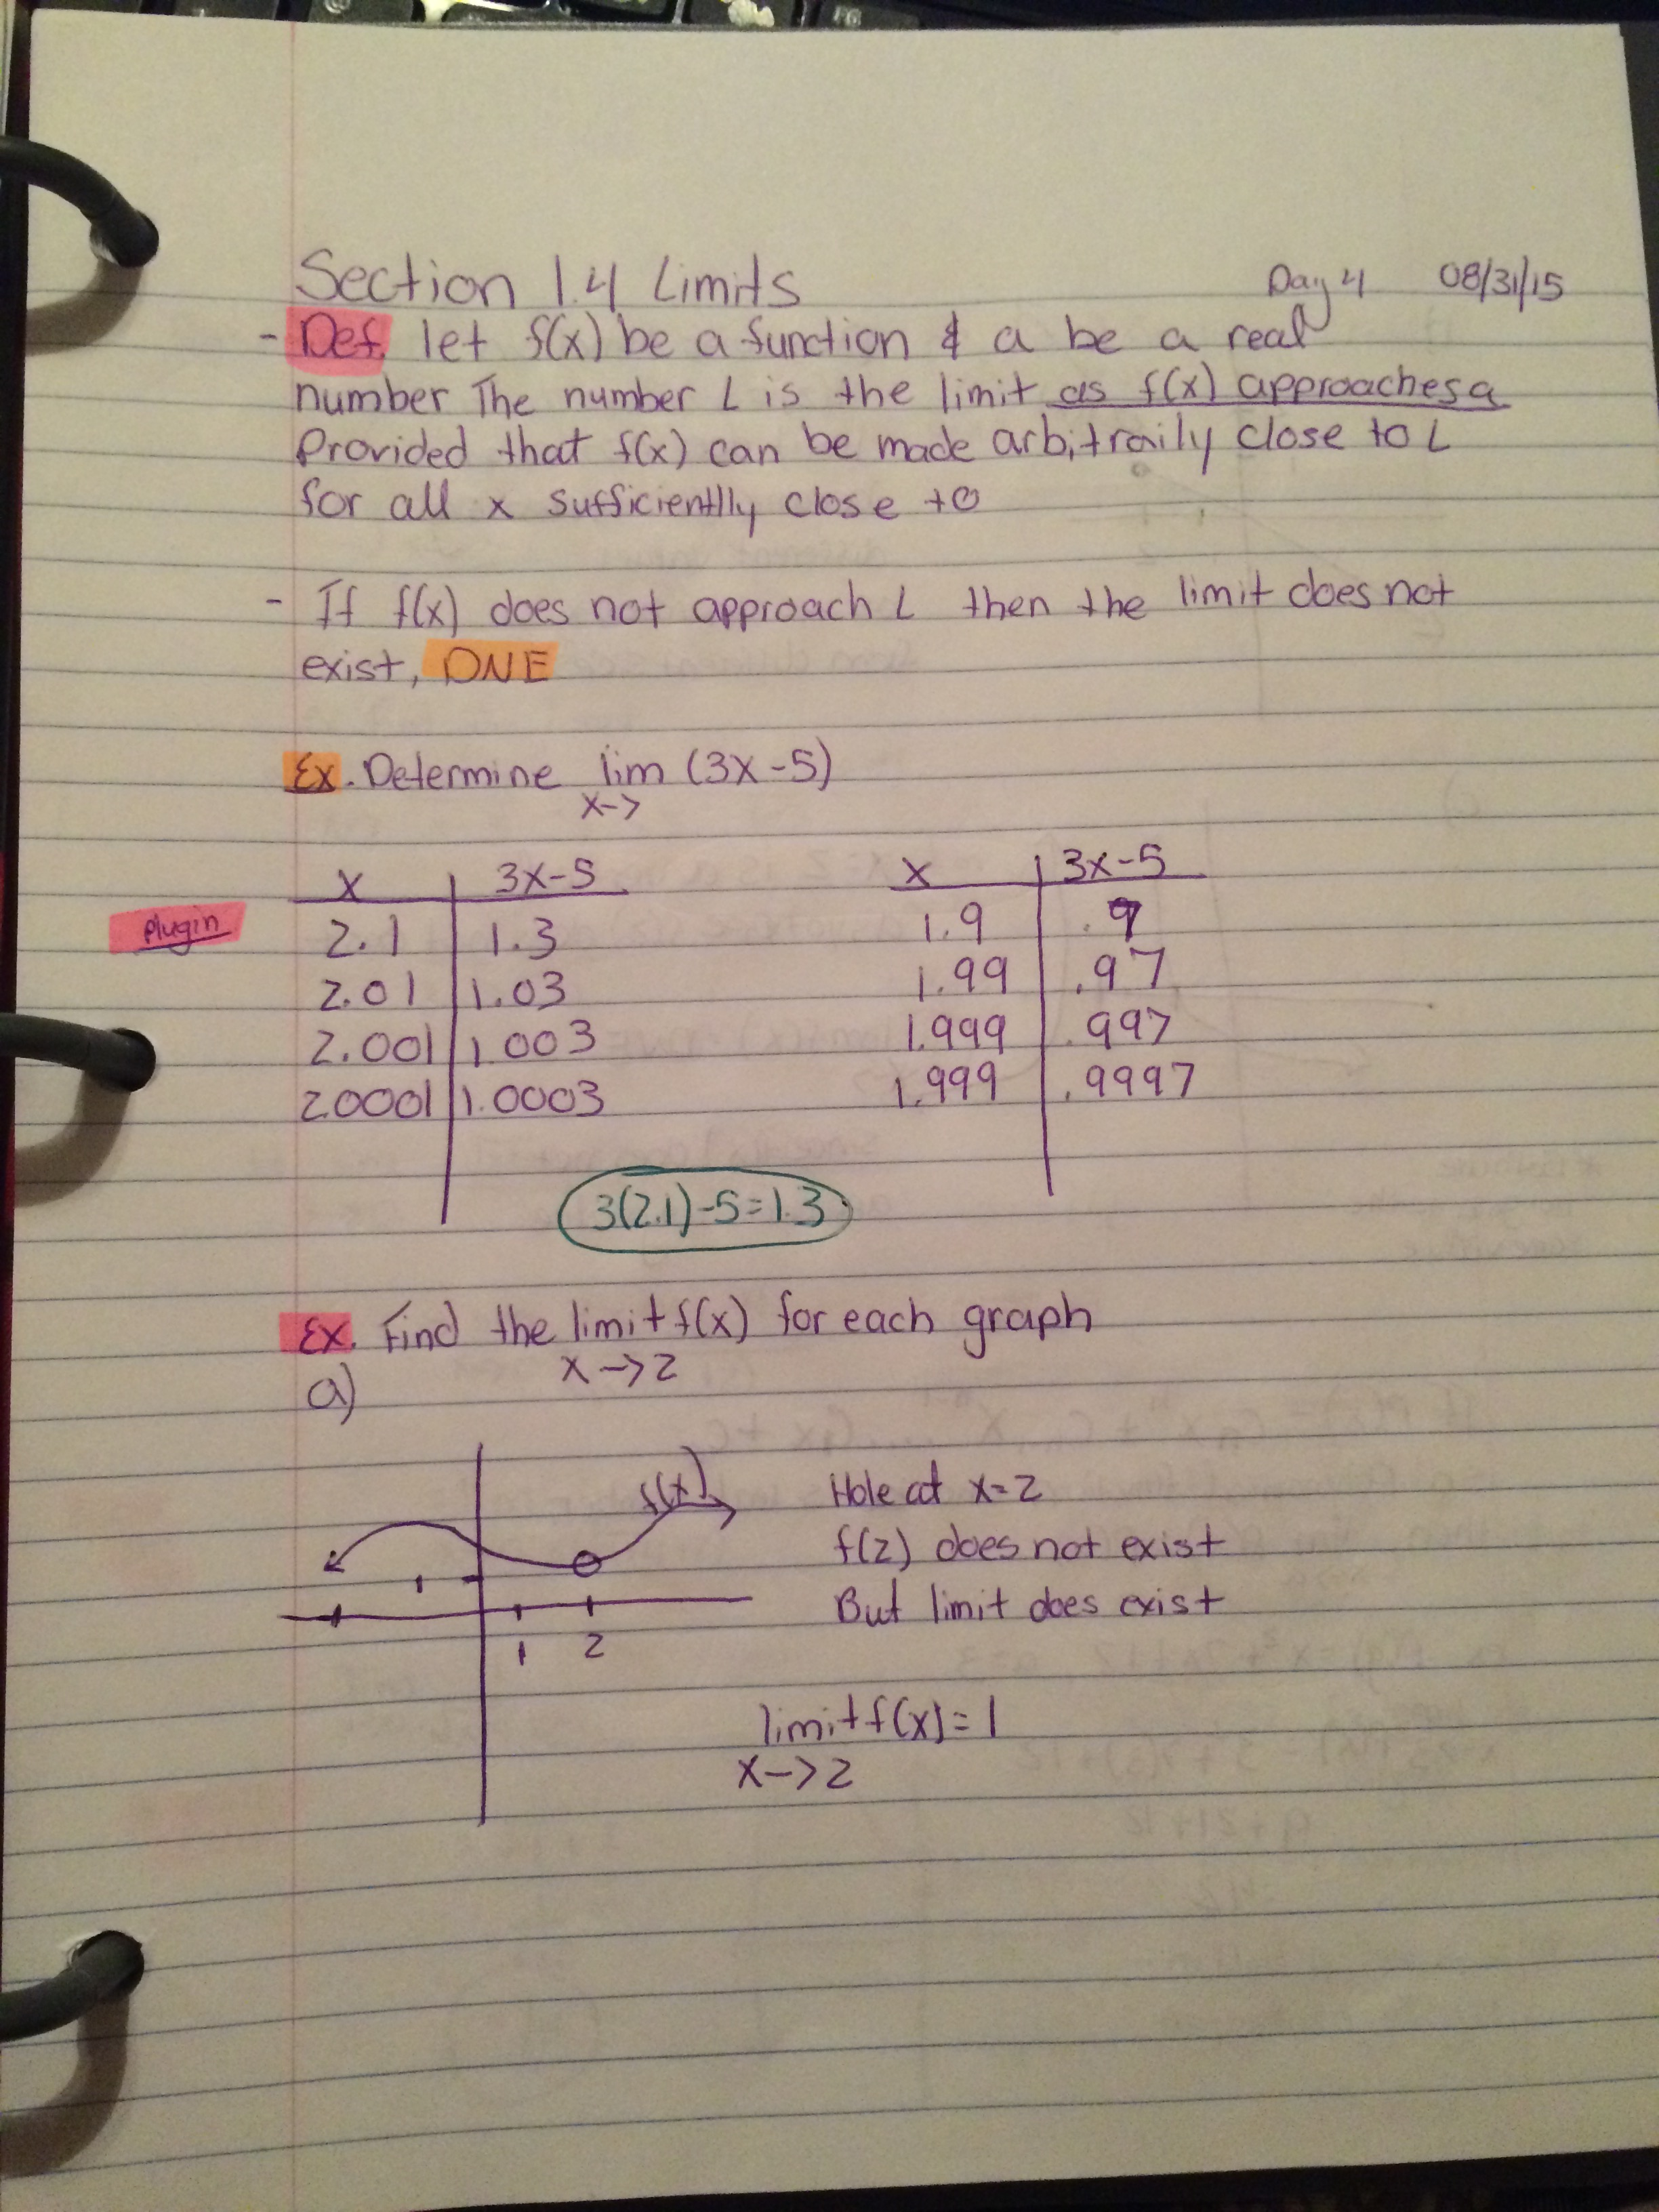 Section 1.4 Limits Day 4 08/31/15
- Def. let f(x) be a function & a be a real
number The number L is the limit as f(x) approaches a
Provided that f(x) can be made arbitraily close to L
for all x sufficientlly close to
- If f(x) does not approach L then the limit does not
exist, DNE
Ex. Determine lim (3x-5)
x->
x 3x-5 x 3x-5
plugin 2.1 1.3 1.9 .7
2.01 1.03 1.99 .97
2.001 1.003 1.999 .997
2.0001 1.0003 1.999 .9997
3(2.1)-5=1.3
Ex. Find the limit f(x) for each graph
x->2
a)
f(x) Hole at x=2
f(2) does not exist
But limit does exist
1 2
limit f(x)=1
x->2